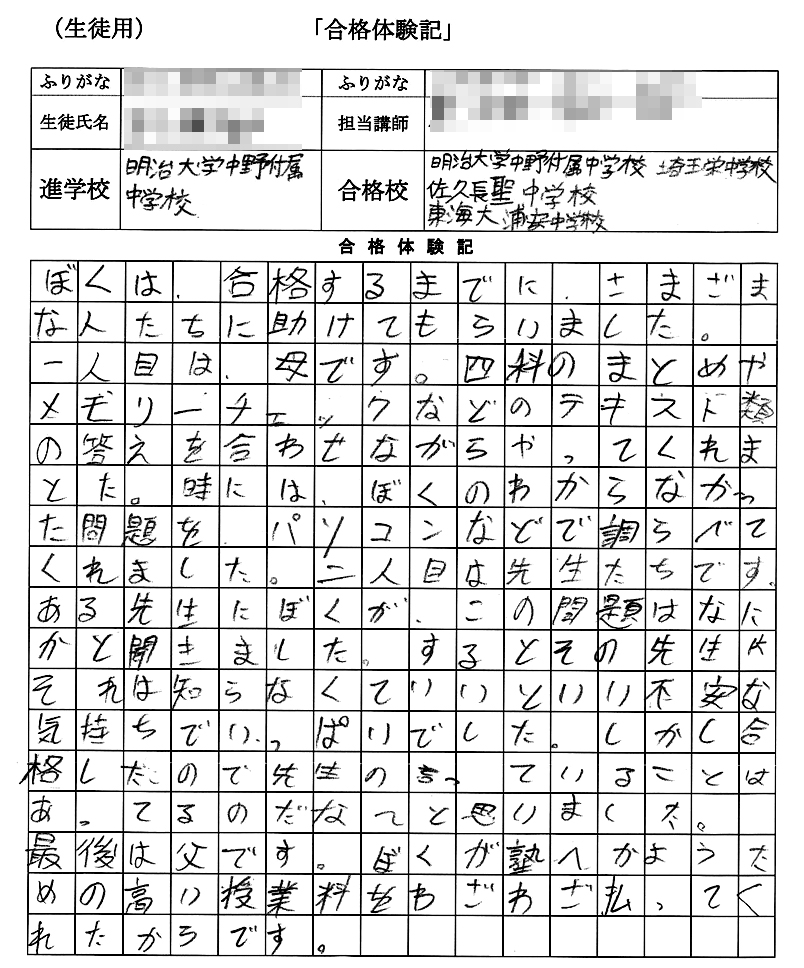 （生徒用）　「合格体験記」
ふりがな　ふりがな
生徒氏名　担当講師
進学校　明治大学中野付属中学校　合格校　明治大学中野付属中学校　埼玉栄中学校
佐久長聖中学校
東海大浦安中学校
合格体験記
ぼくは、合格するまでに、さまざま
な人たちに助けてもらいました。
一人目は、母です。四科のまとめや
メモリーチェックなどのテキスト類
の答えを合わせながらやってくれま
した。時には、ぼくのわからなかっ
た問題を、パソコンなどで調らべて
くれました。二人目は先生たちです。
ある先生にぼくが、この問題はなに
かと聞きました。するとその先生は
それは知らなくていいといい不安な
気持ちでいっぱいでした。しかし合
格したので先生の言っていることは
あってるのだなーと思いました。
最後は父です。ぼくが塾へかようた
めの高い授業料をわざわざ払ってく
れたからです。